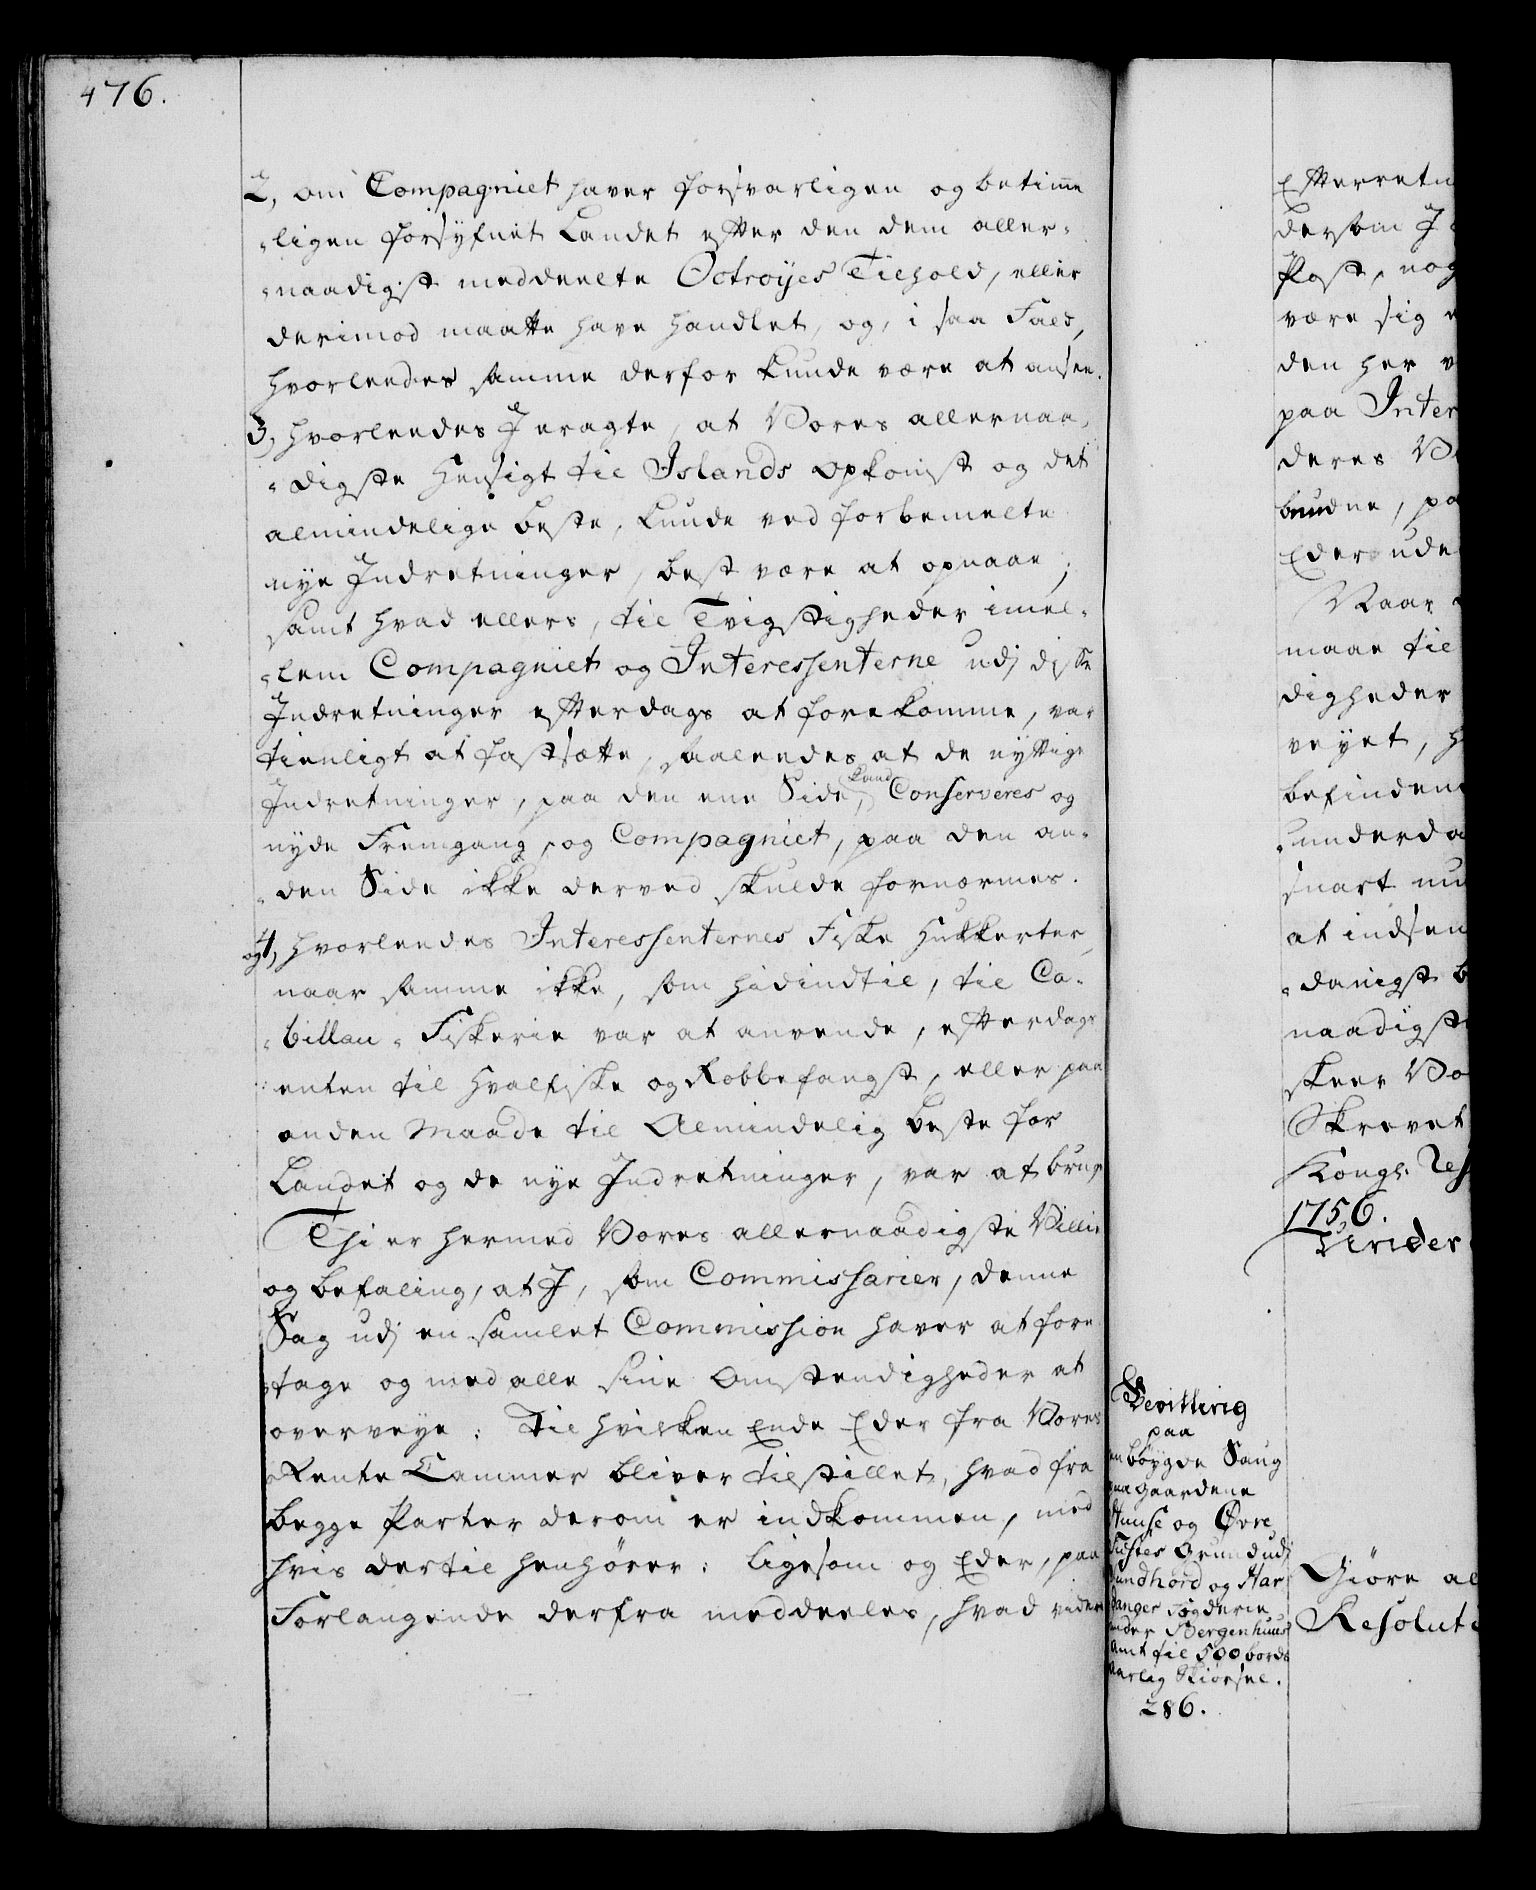 476.
2, om Compagniet haver forsvarligen og betime
-ligen forsyfnet Landet efter den dem aller-
-naadigst meddeelte Octroyes Tilhold, eller
derimod maatte have handlet, og, i saa Fald,
hvorledes samme derfor kunde være at ansee.
3, hvorledes I eragte, at Vores allernaa-
-digste Hensigt til Islands opkomst og det
almindelige beste, kunde ved forbemelte
nye Indretninger, best være at opnaae;
samt hvad ellers, til Tvistigheder imel-
-lem Compagniet og Interessenterne udj disse
Indretninger efterdags at forekomme, var
tienligt at fastsætte, saaledes at de nyttige
Indretninger, paa den ene Side, kand Conserveres og
nyde Fremgang, og Compagniet, paa den an-
-den Side ikke derved skulde fornærmes.
og 4, hvorledes Interessenternes Fiske Hukkerter,
naar samme ikke, som hidindtil, til Ca-
-billau-Fiskerie var at anvende, efterdags
enten til Hvalfiske og Robbefangst, eller paa
anden Maade til Almindelig beste for
Landet og de nye Indretninger, var at bruge
Thi er hermed Vores allernaadigste Villie
og befaling, at I, som Commissarier, denne
Sag udj en samlet Commission haver at fore
tage og med alle sine Omstendigheder at
overveye: Til hvilken Ende Eder fra Vores
Rente Cammer bliver tilstillet, hvad fra
begge Parter derom er indkommen, med
hvis dertil henhører: ligesom og Eder, paa
Forlangende derfra meddeeles, hvad videre
Bevilling
paa
en bøygde Saug
paa Gaardene
Huuse og Øvre
Grund udj
Sundhord og Har
danger Fogderie
under Bergenhuus
Amt til 500 bords
aarlig Skiørsel.
286.
Efterretn
dersom I
Post, nog
være sig e
den her v
paa Inter
deres V
bundne, pa
Eder ude
Naar
maae til
digheder
veyet, h
befinden
-underda
snart mu
at indsen
-danigst b
naadigst
skeer Vo
Skrevet
Kongl. Res
1756.
Urider
Giøre al
Resoluti